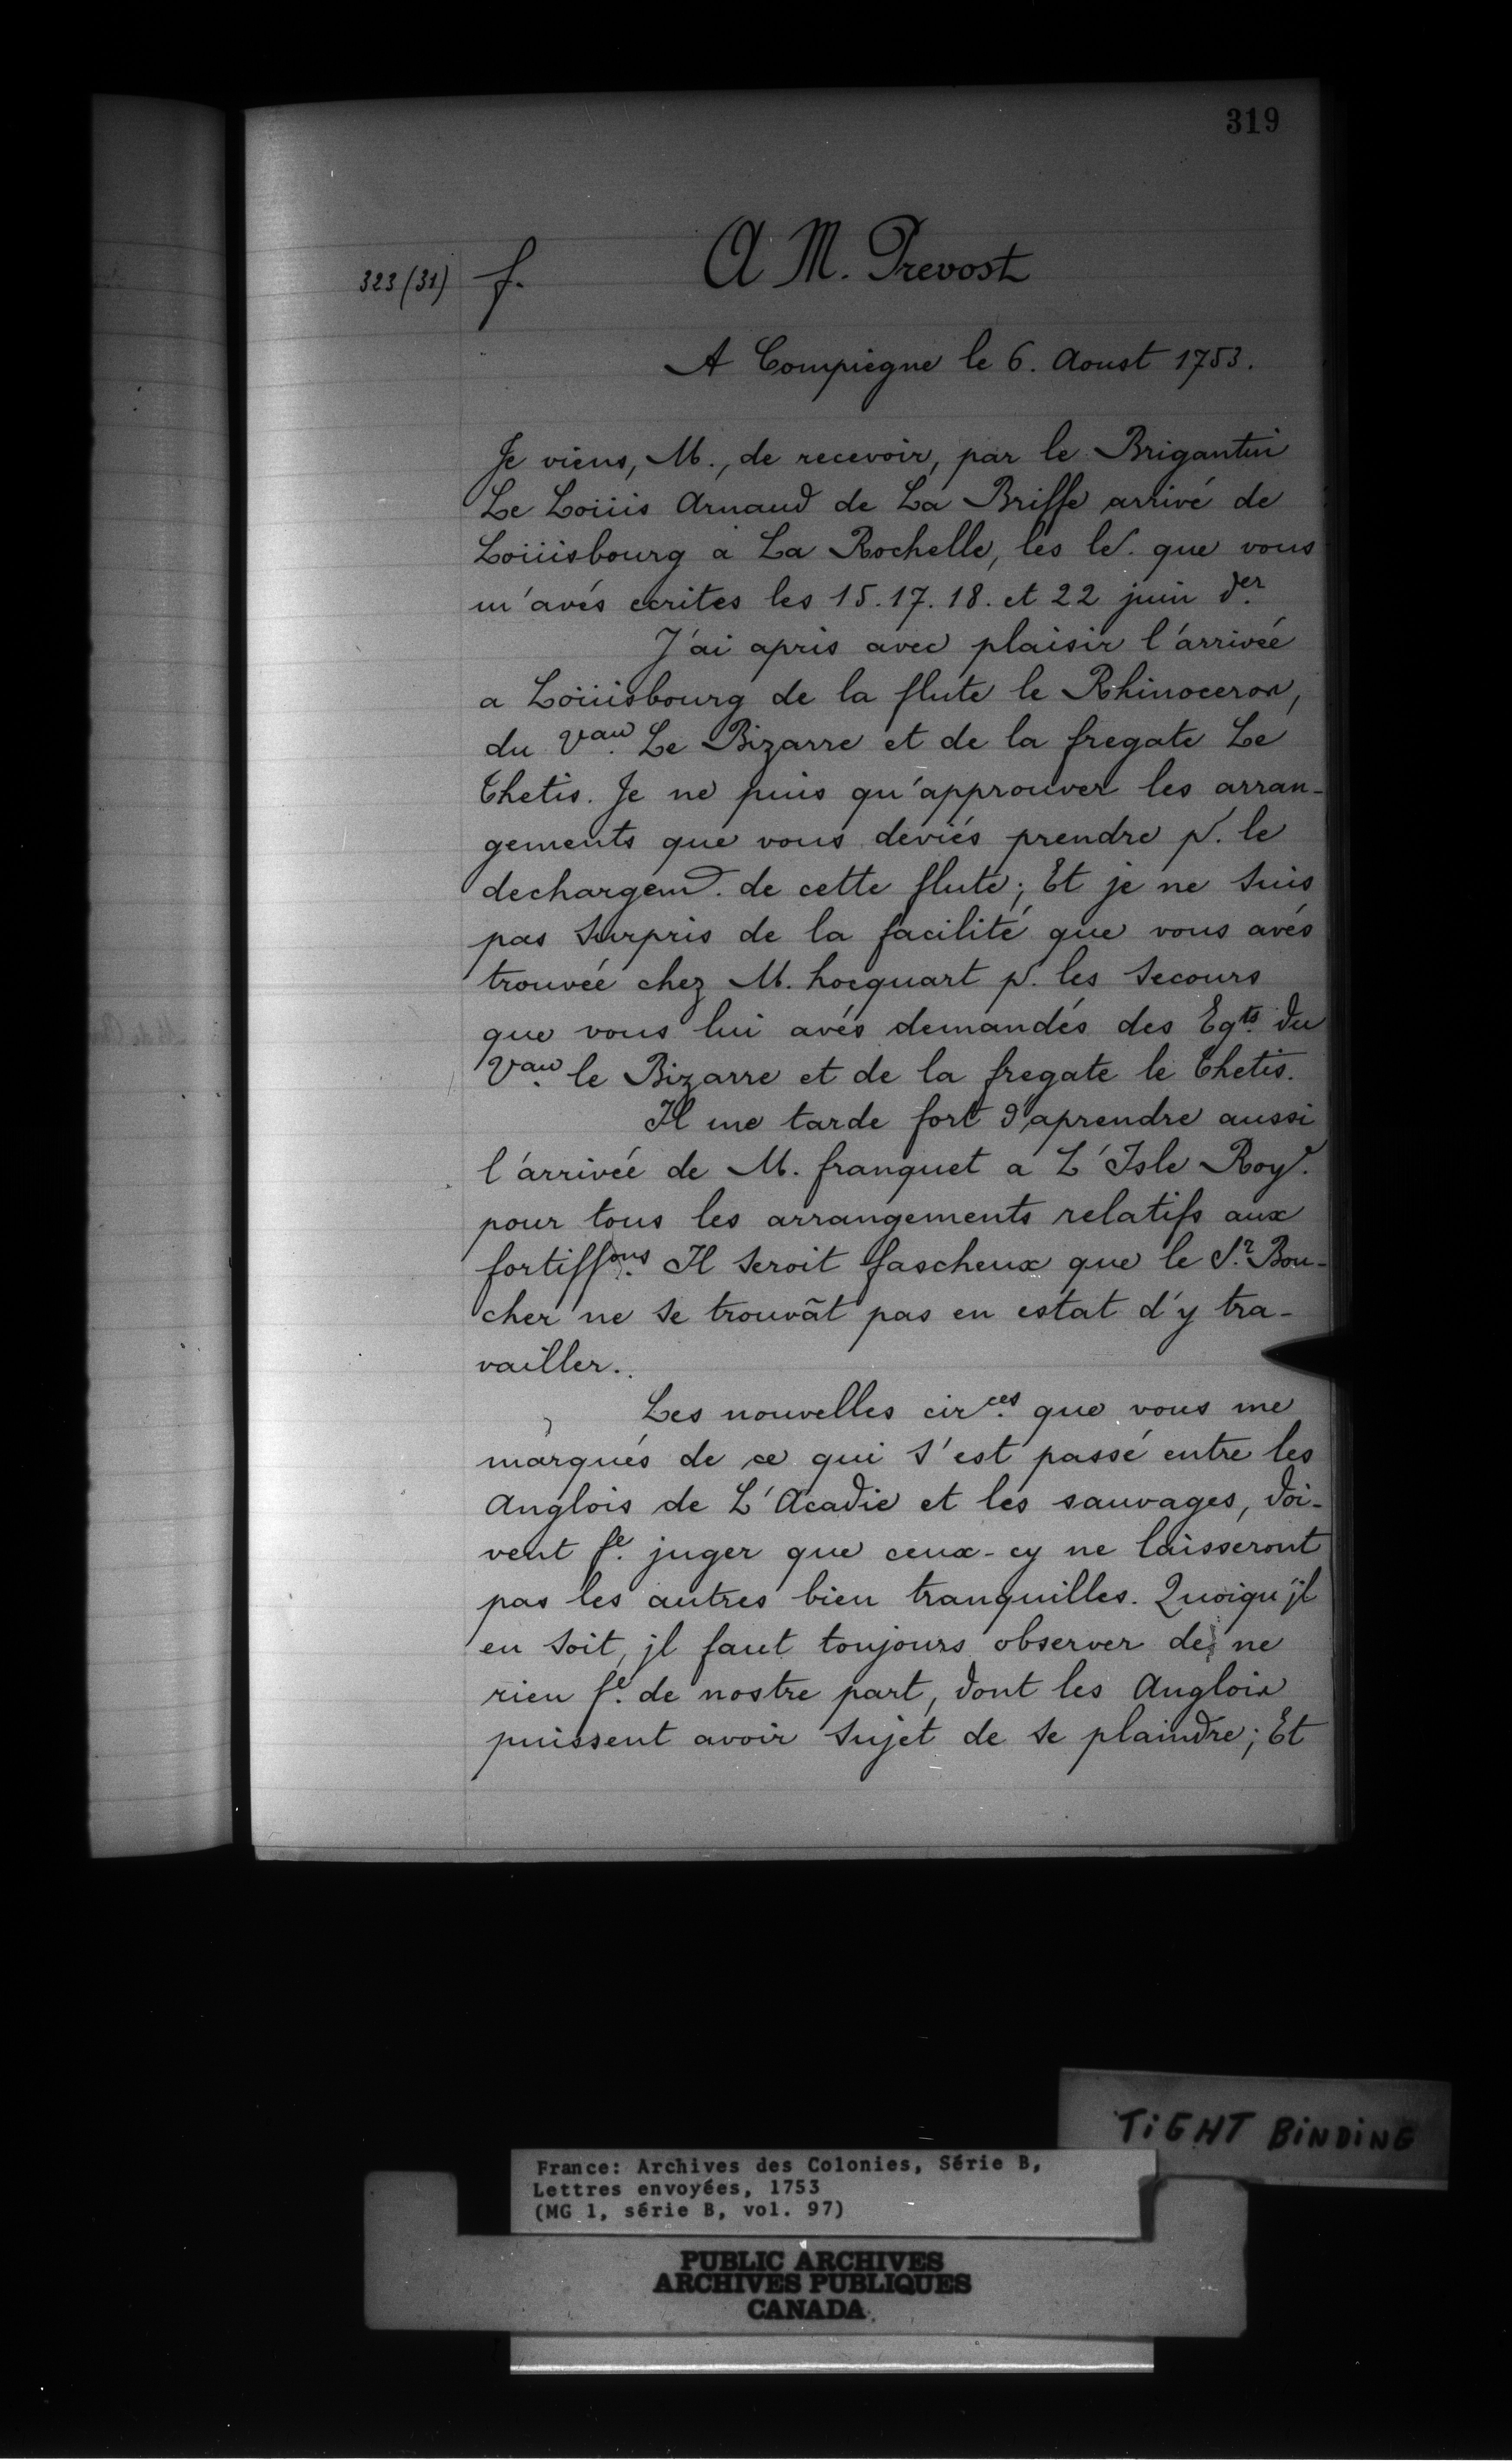 319
323 (31) f. A M. Prevost
A Compiegne le 6. Aoust 1753.
Je viens, M., de recevoir, par le Brigantin
Le Loüis Arnaud de La Briffe arrivé de
Loüisbourg a La Rochelle, les le. que vous
m'avés ecrites les 15. 17. 18. et 22 juin der.
J'ai apris avec plaisir l'arrivée
a Loüisbourg de la flute le Rhinoceros,
du Vau. Le Bizarre et de la fregate Le
Thetis. Je ne puis qu'approuver les arran-
gements que vous deviés prendre p. le
dechargemt. de cette flute; Et je ne suis
pas surpris de la facilité que vous avés
trouvée chez M. hocquart p. les secours
que vous lui avés demandés des Eqts. du
Vau. le Bizarre et de la fregate le Thetis.
Il me tarde fort d'aprendre aussi
l'arrivée de M. franquet a L'Isle Roye.
pour tous les arrangements relatifs aux
fortiffons. Il seroit fascheux que le Sr. Bou-
cher ne se trouvât pas en estat d'y tra-
vailler.
Les nouvelles circes. que vous me
marqués de ce qui s'est passé entre les
Anglois de L'Acadie et les sauvages, doi-
vent fe. juger que ceux-cy ne laisseront
pas les autres bien tranquilles. Quoiqu'jl
en soit, jl faut toujours observer de ne
rien fe. de nostre part, dont les Anglois
puissent avoir sujet de se plaindre; Et
TIGHT BINDING
France: Archives des Colonies, Série B,
Lettres envoyées, 1753
(MG 1, série B, vol. 97)
PUBLIC ARCHIVES
ARCHIVES PUBLIQUES
CANADA